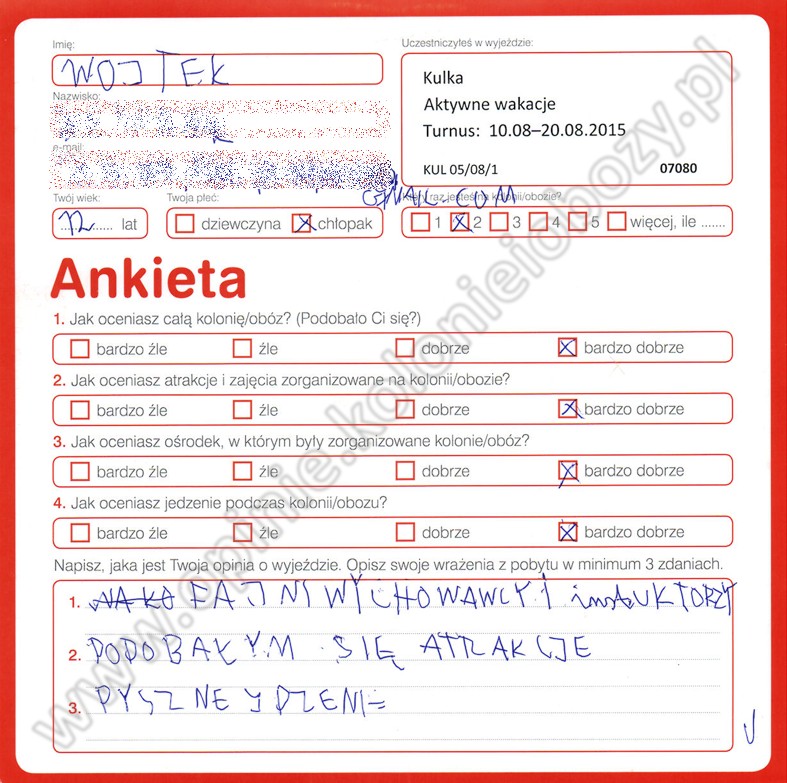 Imię:
WOJTEK
Uczestniczyłeś w wyjeździe:
Kulka
Aktywne wakacje
Turnus: 10.08–20.08.2015
KUL 05/08/1 07080
Nazwisko:
e-mail:
GMAIL.COM
Twój wiek:
12 lat
Twoja płeć:
dziewczyna chłopak
Który raz jesteś na kolonii/obozie?
1 2 3 4 5 więcej, ile .......
Ankieta
1. Jak oceniasz całą kolonię/obóz? (Podobało Ci się?)
bardzo źle źle dobrze bardzo dobrze
2. Jak oceniasz atrakcje i zajęcia zorganizowane na kolonii/obozie?
bardzo źle źle dobrze bardzo dobrze
3. Jak oceniasz ośrodek, w którym były zorganizowane kolonie/obóz?
bardzo źle źle dobrze bardzo dobrze
4. Jak oceniasz jedzenie podczas kolonii/obozu?
bardzo źle źle dobrze bardzo dobrze
Napisz, jaka jest Twoja opinia o wyjeździe. Opisz swoje wrażenia z pobytu w minimum 3 zdaniach.
1. FAJNI WYCHOWAWCY I instRUKTORZY
2. PODOBAŁYM SIĘ ATRAKCJE
3. PYSZNE YDZENIE
www.opinie.kolonieiobozy.pl